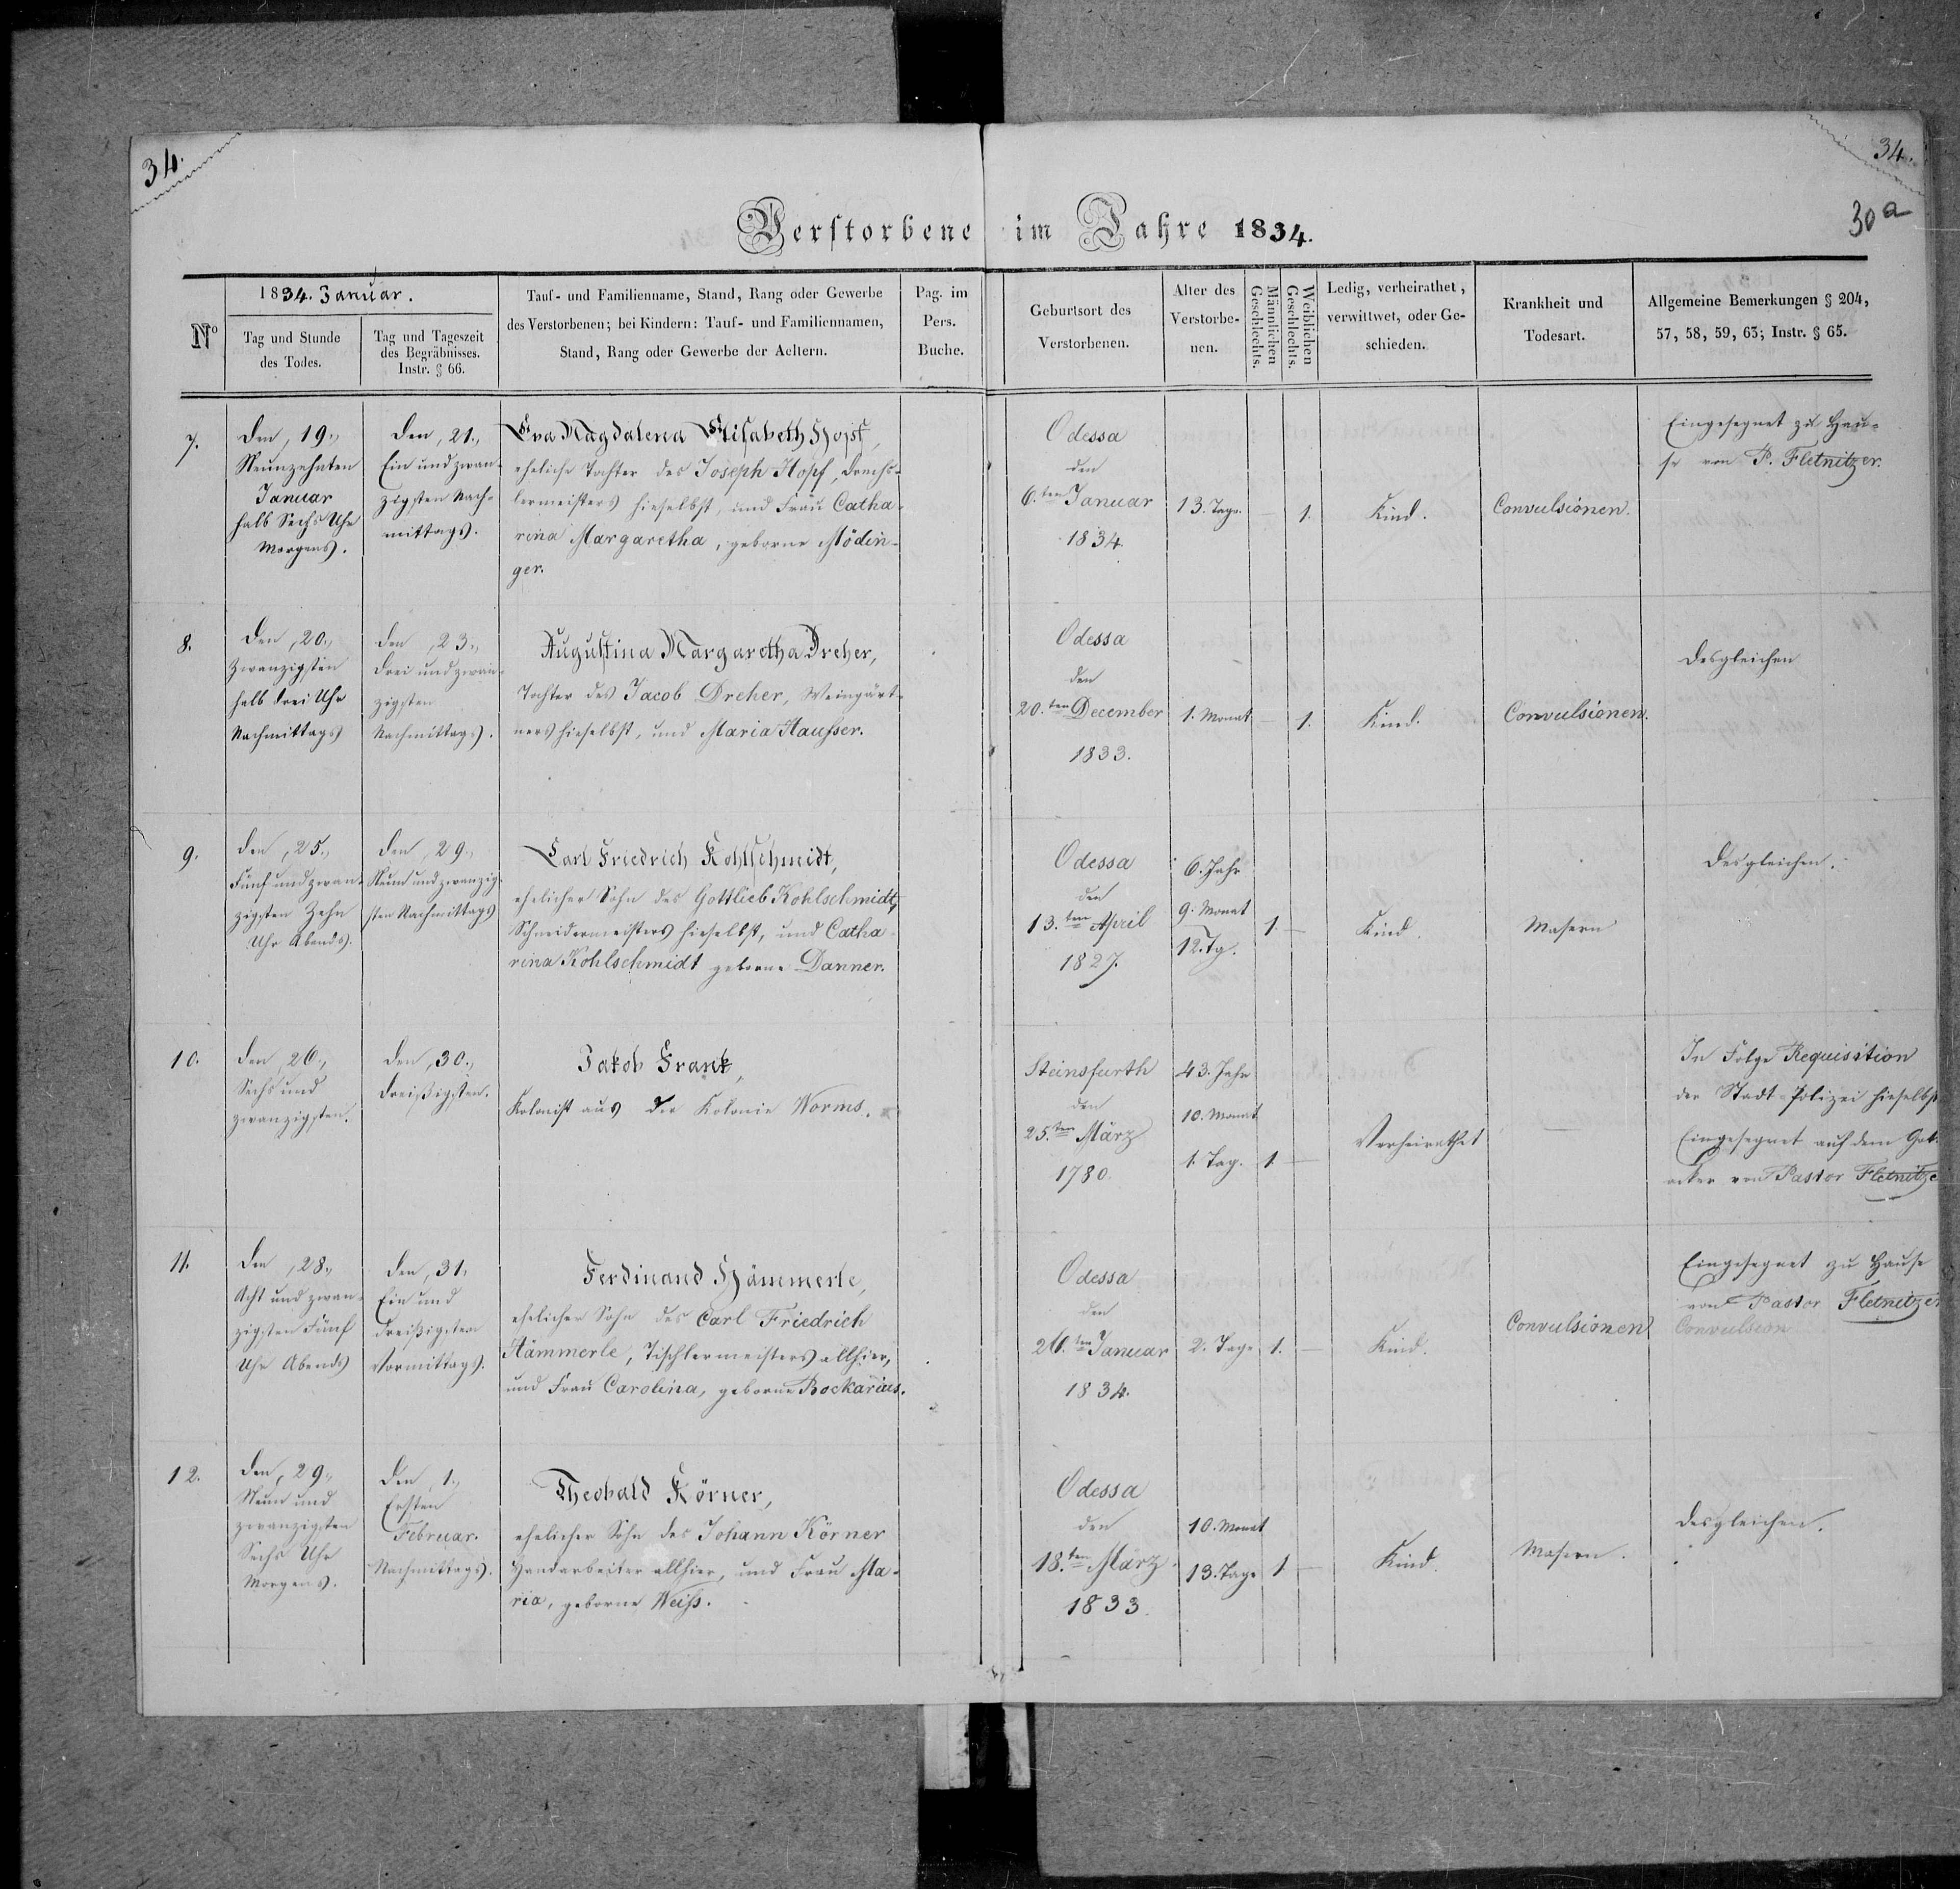 34.
34.
30a
Verstorbene im Jahre 1834.
No
1834. Januar.
Tag und Stunde
des Todes.
Tag und Tageszeit
des Begräbnisses.
Instr. § 66.
Tauf- und Familienname, Stand, Rang oder Gewerbe
des Verstorbenen; bei Kindern: Tauf- und Familiennamen,
Stand, Rang oder Gewerbe der Aeltern.
Pag. im
Pers.
Buche.
Geburtsort des
Verstorbenen.
Alter des
Verstorbe-
nen.
Männlichen
Geschlechts.
Weiblichen
Geschlechts.
Ledig, verheirathet,
verwittwet, oder Ge-
schieden.
Krankheit und
Todesart.
Allgemeine Bemerkungen § 204,
57, 58, 59, 63; Instr. § 65.
7.
Den, 19.,
Neunzehnten
Januar
halb Sechs Uhr
Morgens.
Den, 21.,
Ein und zwan-
zigsten Nach-
mittags.
Eva Magdalena Elisabeth Hopf,
eheliche Tochter des Joseph Hopf, Drechs-
lermeisters hieselbst, und Frau Catha-
rina Margaretha, geborne Mödin-
ger.
Odessa
den
6.ten Januar
1834.
13. Tage.
—
1.
Kind.
Convulsionen.
Eingesegnet zu Hau-
se von P. Fletnitzer.
8.
Den, 20.,
Zwanzigsten
halb drei Uhr
Nachmittags
Den, 23.,
Drei und zwan-
zigsten
Nachmittags.
Augustina Margaretha Dreher,
Tochter des Jacob Dreher, Weingärt-
ners hieselbst, und Maria Hausser.
Odessa
den
20.ten December
1833.
1. Monat
—
1.
Kind.
Convulsionen.
Desgleichen
9.
Den, 25.,
Fünf und zwan-
zigsten Zehn
Uhr Abends.
Den, 29.,
Neun und zwanzig-
sten Nachmittags
Carl Friedrich Kohlschmidt,
ehelicher Sohn des Gottlieb Kohlschmidt,
Schneidermeisters hieselbst, und Catha-
rina Kohlschmidt geborne Danner.
Odessa
den
13.ten April
1827.
6. Jahr
9. Monat
12. Tg.
1.
—
Kind.
Masern
Desgleichen.
10.
Den, 26.,
Sechs und
zwanzigsten.
Den, 30.,
Dreißigsten.
Jakob Frank,
Kolonist aus der Kolonie Worms.
Steinsfurth
den
25.ten März
1780.
43. Jahr
10. Monat
1. Tag.
1.
—
Verheirathet
—
In Folge Requisition
der Stadt-Polizei hieselbst
Eingesegnet auf dem Got-
acker von Pastor Fletnitze
11.
Den, 28.,
Acht und zwan-
zigsten Fünf
Uhr Abends
Den, 31,
Ein und
dreißigsten
Vormittags.
Ferdinand Hämmerle,
ehelicher Sohn des Carl Friedrich
Hämmerle, Tischlermeisters allhier,
und Frau Carolina, geborne Bockarius.
Odessa
den
26.ten Januar
1834.
2. Tage
1.
—
Kind.
Convulsionen
Eingesegnet zu Hause
von Pastor Fletnitzer
Convulsion
12.
Den, 29.,
Neun und
zwanzigsten
Sechs Uhr
Morgens.
Den, 1.,
Ersten
Februar.
Nachmittags.
Theobald Körner,
ehelicher Sohn des Johann Körner
Handarbeiter allhier, und Frau Ma-
ria, geborne Weiss.
Odessa
den
18.ten März
1833.
10. Monat
13. Tage
1
—
Kind.
Masern.
Desgleichen.